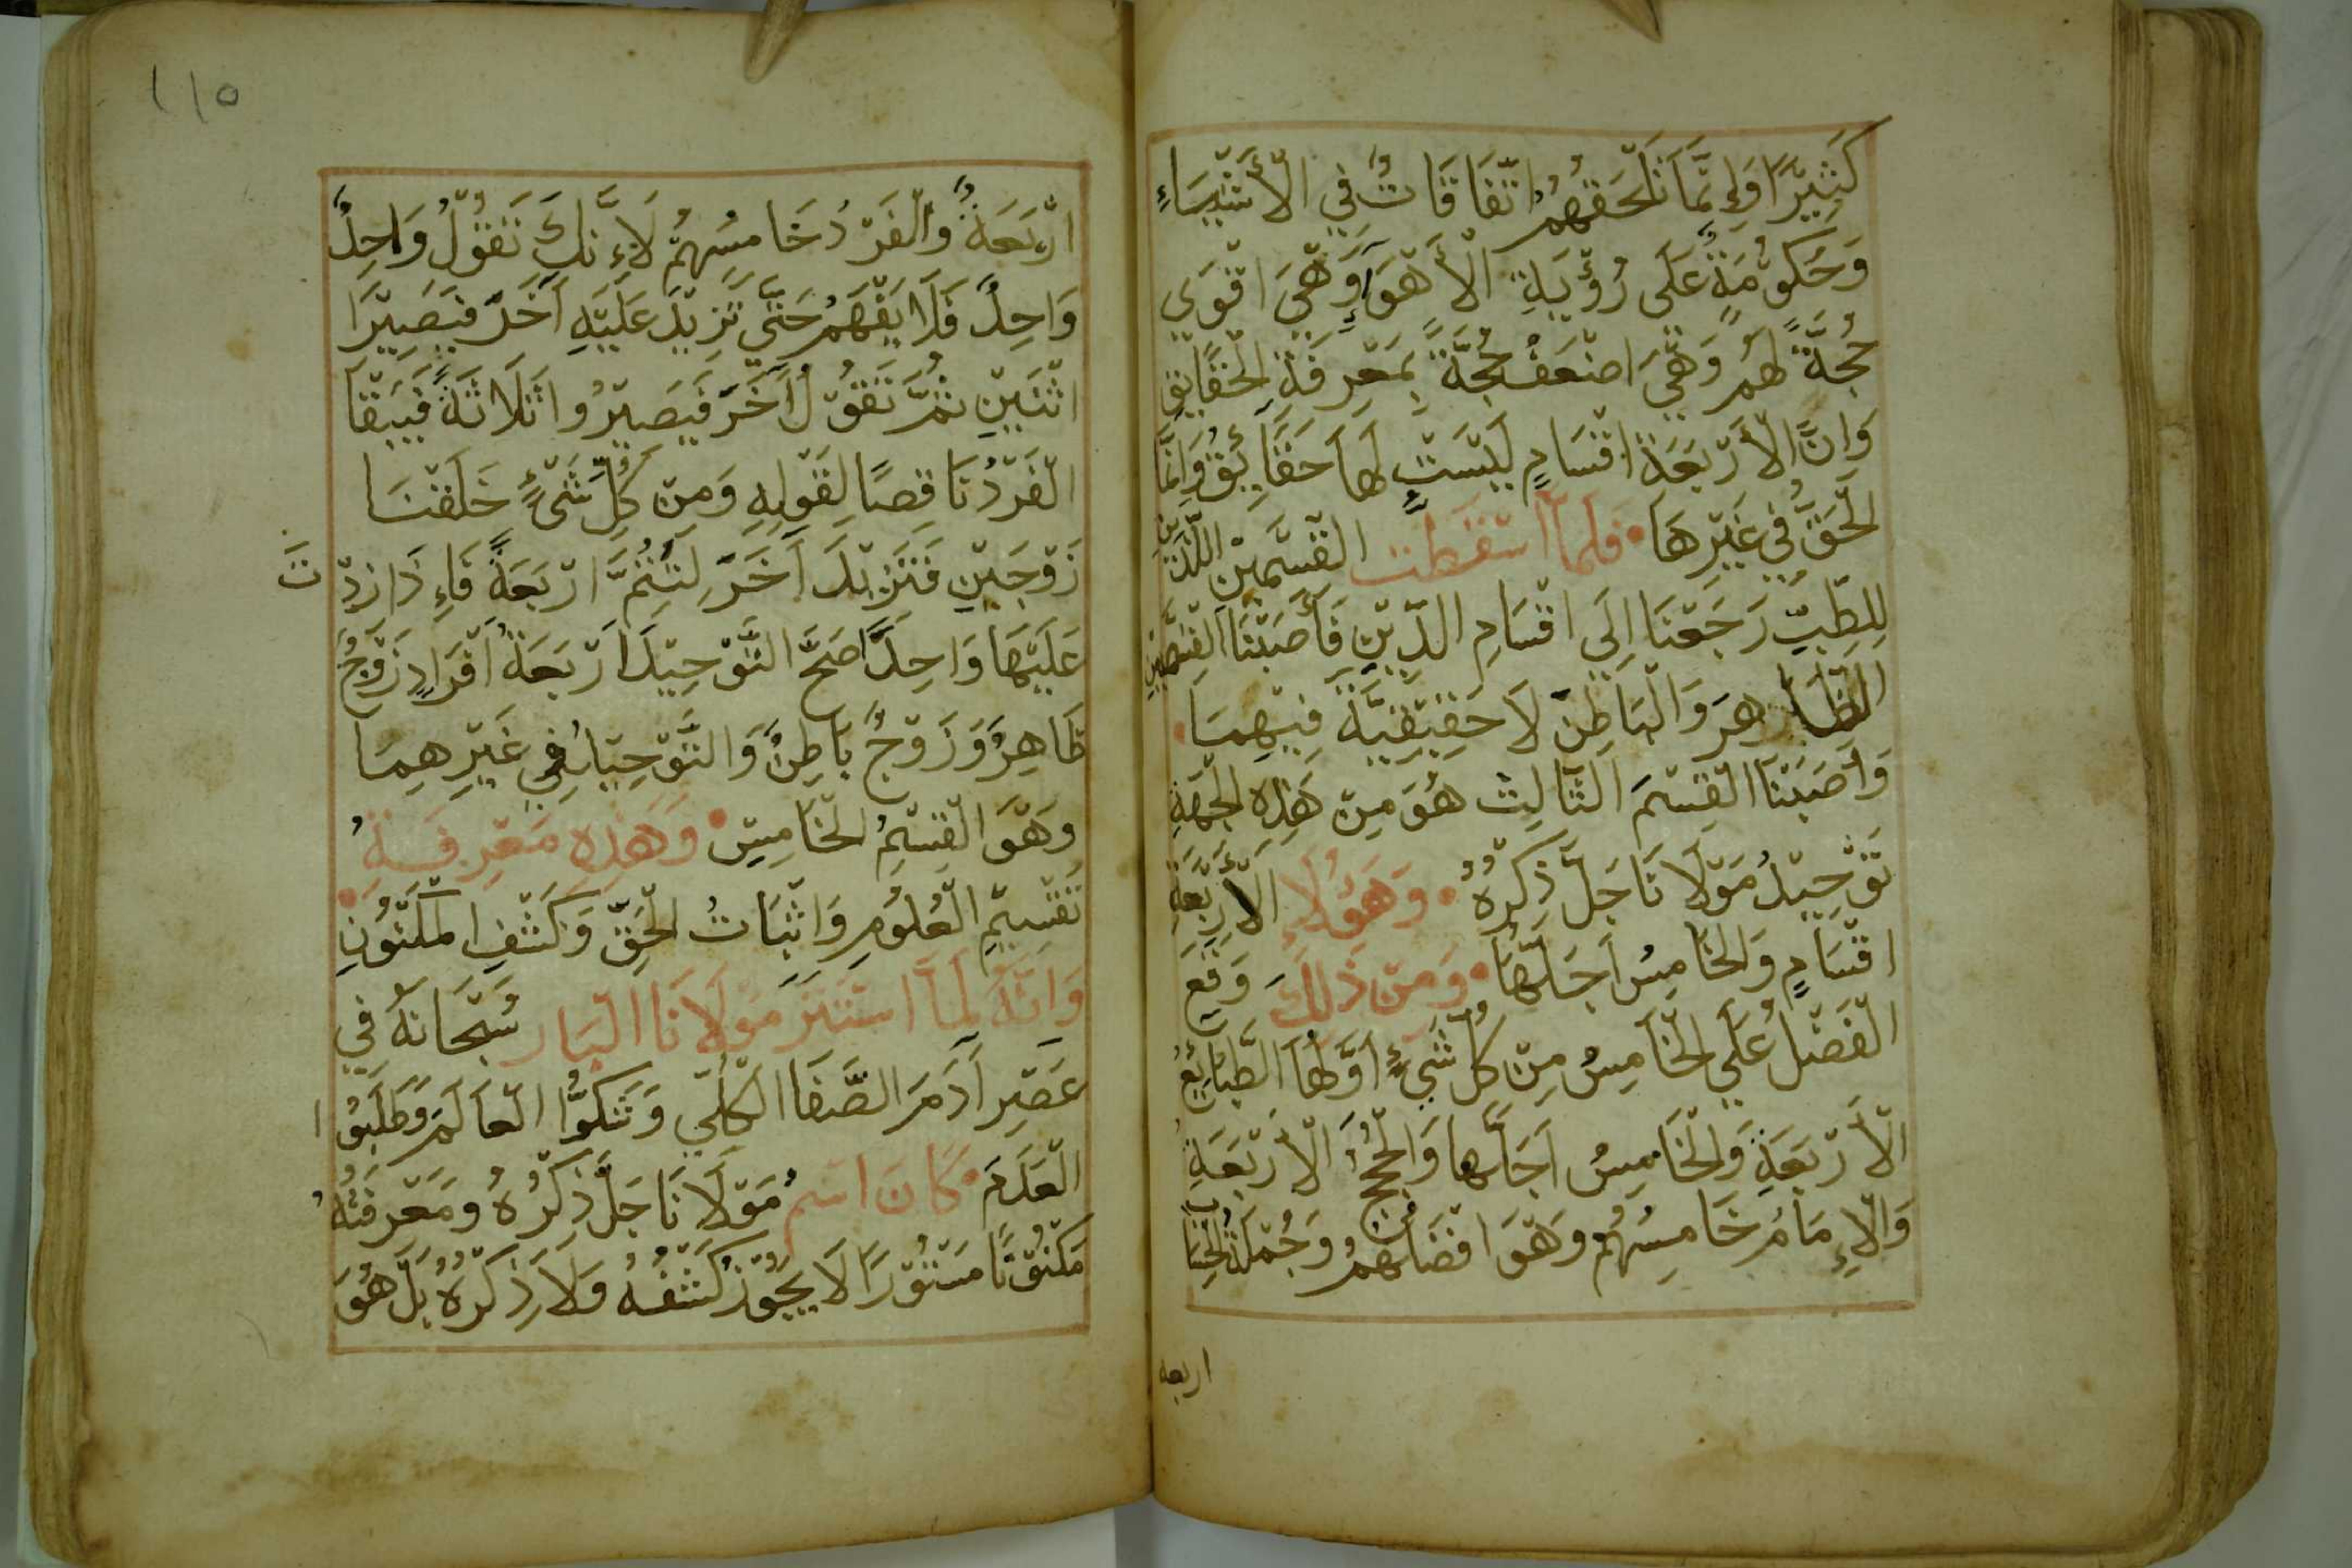 كَثِيْرًا وَاِنَّمَا تَلْحَقُهُمُ اتّفَاقَاتٌ فِي الْأَشْيَاءِ
وَحُكُوْمَةٌ عَلَى رُؤْيَةِ الْأَهْوَاءِ وَهْيَ اقْوَى
حُجَّةً لَهُمْ وَهْيَ اضْعَفُ حُجَّةً بِمَعْرِفَةِ الْحَقَايِقِ
وَاِنَّ الْأَرْبَعَةَ اقْسَامٍ لَيْسَتْ لَهَا حَقَايِقُ وَاِنَّمَا
الْحَقُّ فِي غَيْرِهَا • فَلَمَّا اسْقَطْتَ الْقِسْمَيْنِ اللَّذَيْنِ
لِلطِّبِّ رَجَعْنَا اِلَى اقْسَامِ الدِّيْنِ فَأَصَبْنَا الْقِسْمَيْنِ
الظَّاهِرَ وَالْبَاطِنَ لَا حَقِيْقِيَّةَ فِيْهِمَا •
وَأَصَبْنَا الْقِسْمَ الثَّالِثَ هُوَ مِنْ هَذِهِ الْجِهَةِ
تَوْحِيْدُ مَوْلَانَا جَلَّ ذِكْرُهُ • وَهَؤُلَاءِ الْأَرْبَعَةِ
اقْسَامٍ وَالْخَامِسُ اَجَلَّهَا • وَمِنْ ذَلِكَ وَقَعَ
الْفَضْلُ عَلَى الْخَامِسُ مِنْ كُلِّ شَيْءٍ اَوَّلُهَا الطَّبَائِعُ
الْأَرْبَعَةِ وَالْخَامِسُ اَجَلَّهَا وَالْحُجَجُ الْأَرْبَعَةِ
وَالْاِمَامُ خَامِسُهُمْ وَهْوَ افْضَلُهُمْ وَجُمْلَةُ الْحِسَابِ
اربعه
١١٥
ارْبَعَةٌ وَالْفَرْدُ خَامِسُهُمْ لِاَنَّكَ تَقُوْلُ وَاحِدٌ
وَاحِدٌ فَلَا يَفْهَمُ حَتَّى تَزِيْدَ عَلَيْهِ اَخَرَ فَيَصِيْرَا
اثْنَيْنِ ثُمَّ تَقُوْلُ اَخَرَ فَيَصِيْرُوا ثَلَاثَةً فَيَبْقَا
الْفَرْدُ نَاقِصًا لِقَوْلِهِ وَمِنْ كُلِّ شَيْءٍ خَلَقْنَا
زَوْجَيْنِ فَتَزِيْدَ اَخَرَ لِتَتُمَّ ارْبَعَةً فَاِذَا زِدْتَ
عَلَيْهَا وَاحِدًا صَحَّ التَّوْحِيْدَ ارْبَعَةُ اَفْرَادٍ زَوْجٌ
ظَاهِرٌ وَزَوْجٌ بَاطِنٌ وَالتَّوْحِيْدُ فِي غَيْرِهِمَا
وَهْوَ الْقِسْمُ الْخَامِسْ • وَهَذِهِ مَعْرِفَةُ
تَقْسِيْمِ الْعُلُومِ وَاثْبَاتُ الْحَقِّ وَكَشْفِ الْمَكْنُونِ •
وَانَّهُ لَمَّا اسْتَتَرَ مَوْلَانَا الْبَار سُبْحَانَهُ فِي
عَصْرِ اَدَمَ الصَّفَا الْكُلِّي وَشَكُوا الْعَالَمَ وَطَلَبُوا
الْعَدَمَ • كَانَ اسْمُ مَوْلَانَا جَلَّ ذِكْرُهُ وَمَعْرِفَتُهُ
مَكْنُوْنًا مَسْتُوْرًا لَا يَجُوْزُ كَشْفُهُ وَلَا ذِكْرُهُ بَلْ هُوَ